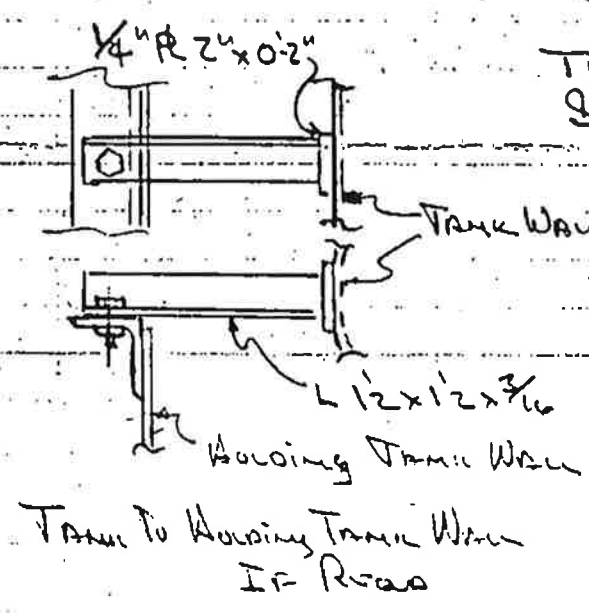 1/4" PL 2" x 0'-2"
TANK WALL
L 1 1/2 x 1 1/2 x 3/16
HOLDING TANK WALL
TANK TO HOLDING TANK WALL
IF REQD